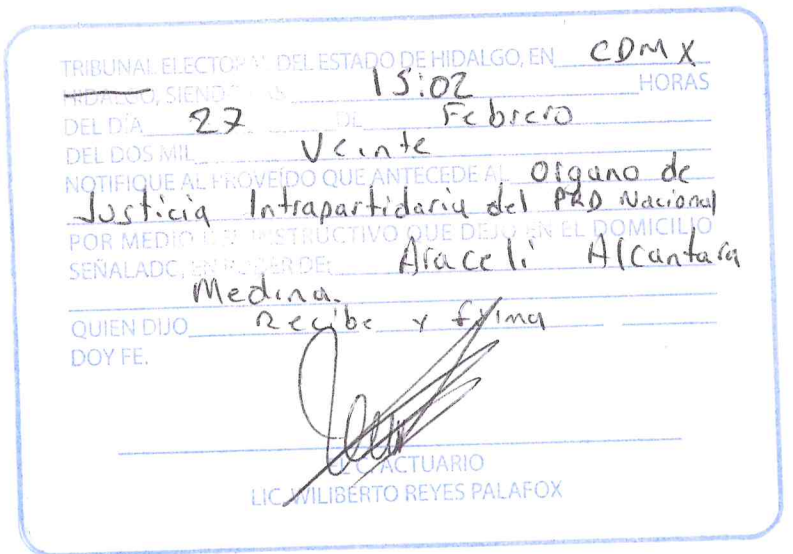 TRIBUNAL ELECTORAL DEL ESTADO DE HIDALGO, EN CDMX
HIDALGO, SIENDO LAS 15:02 HORAS
DEL DÍA 27 DE Febrero
DEL DOS MIL Veinte
NOTIFIQUE AL PROVEÍDO QUE ANTECEDE AL Organo de
Justicia Intrapartidaria del PRD Nacional
POR MEDIO DE INSTRUCTIVO QUE DEJO EN EL DOMICILIO
SEÑALADO, EN PODER DE: Araceli Alcantara
Medina.
QUIEN DIJO Recibe y firma
DOY FE.
EL C. ACTUARIO
LIC. WILIBERTO REYES PALAFOX